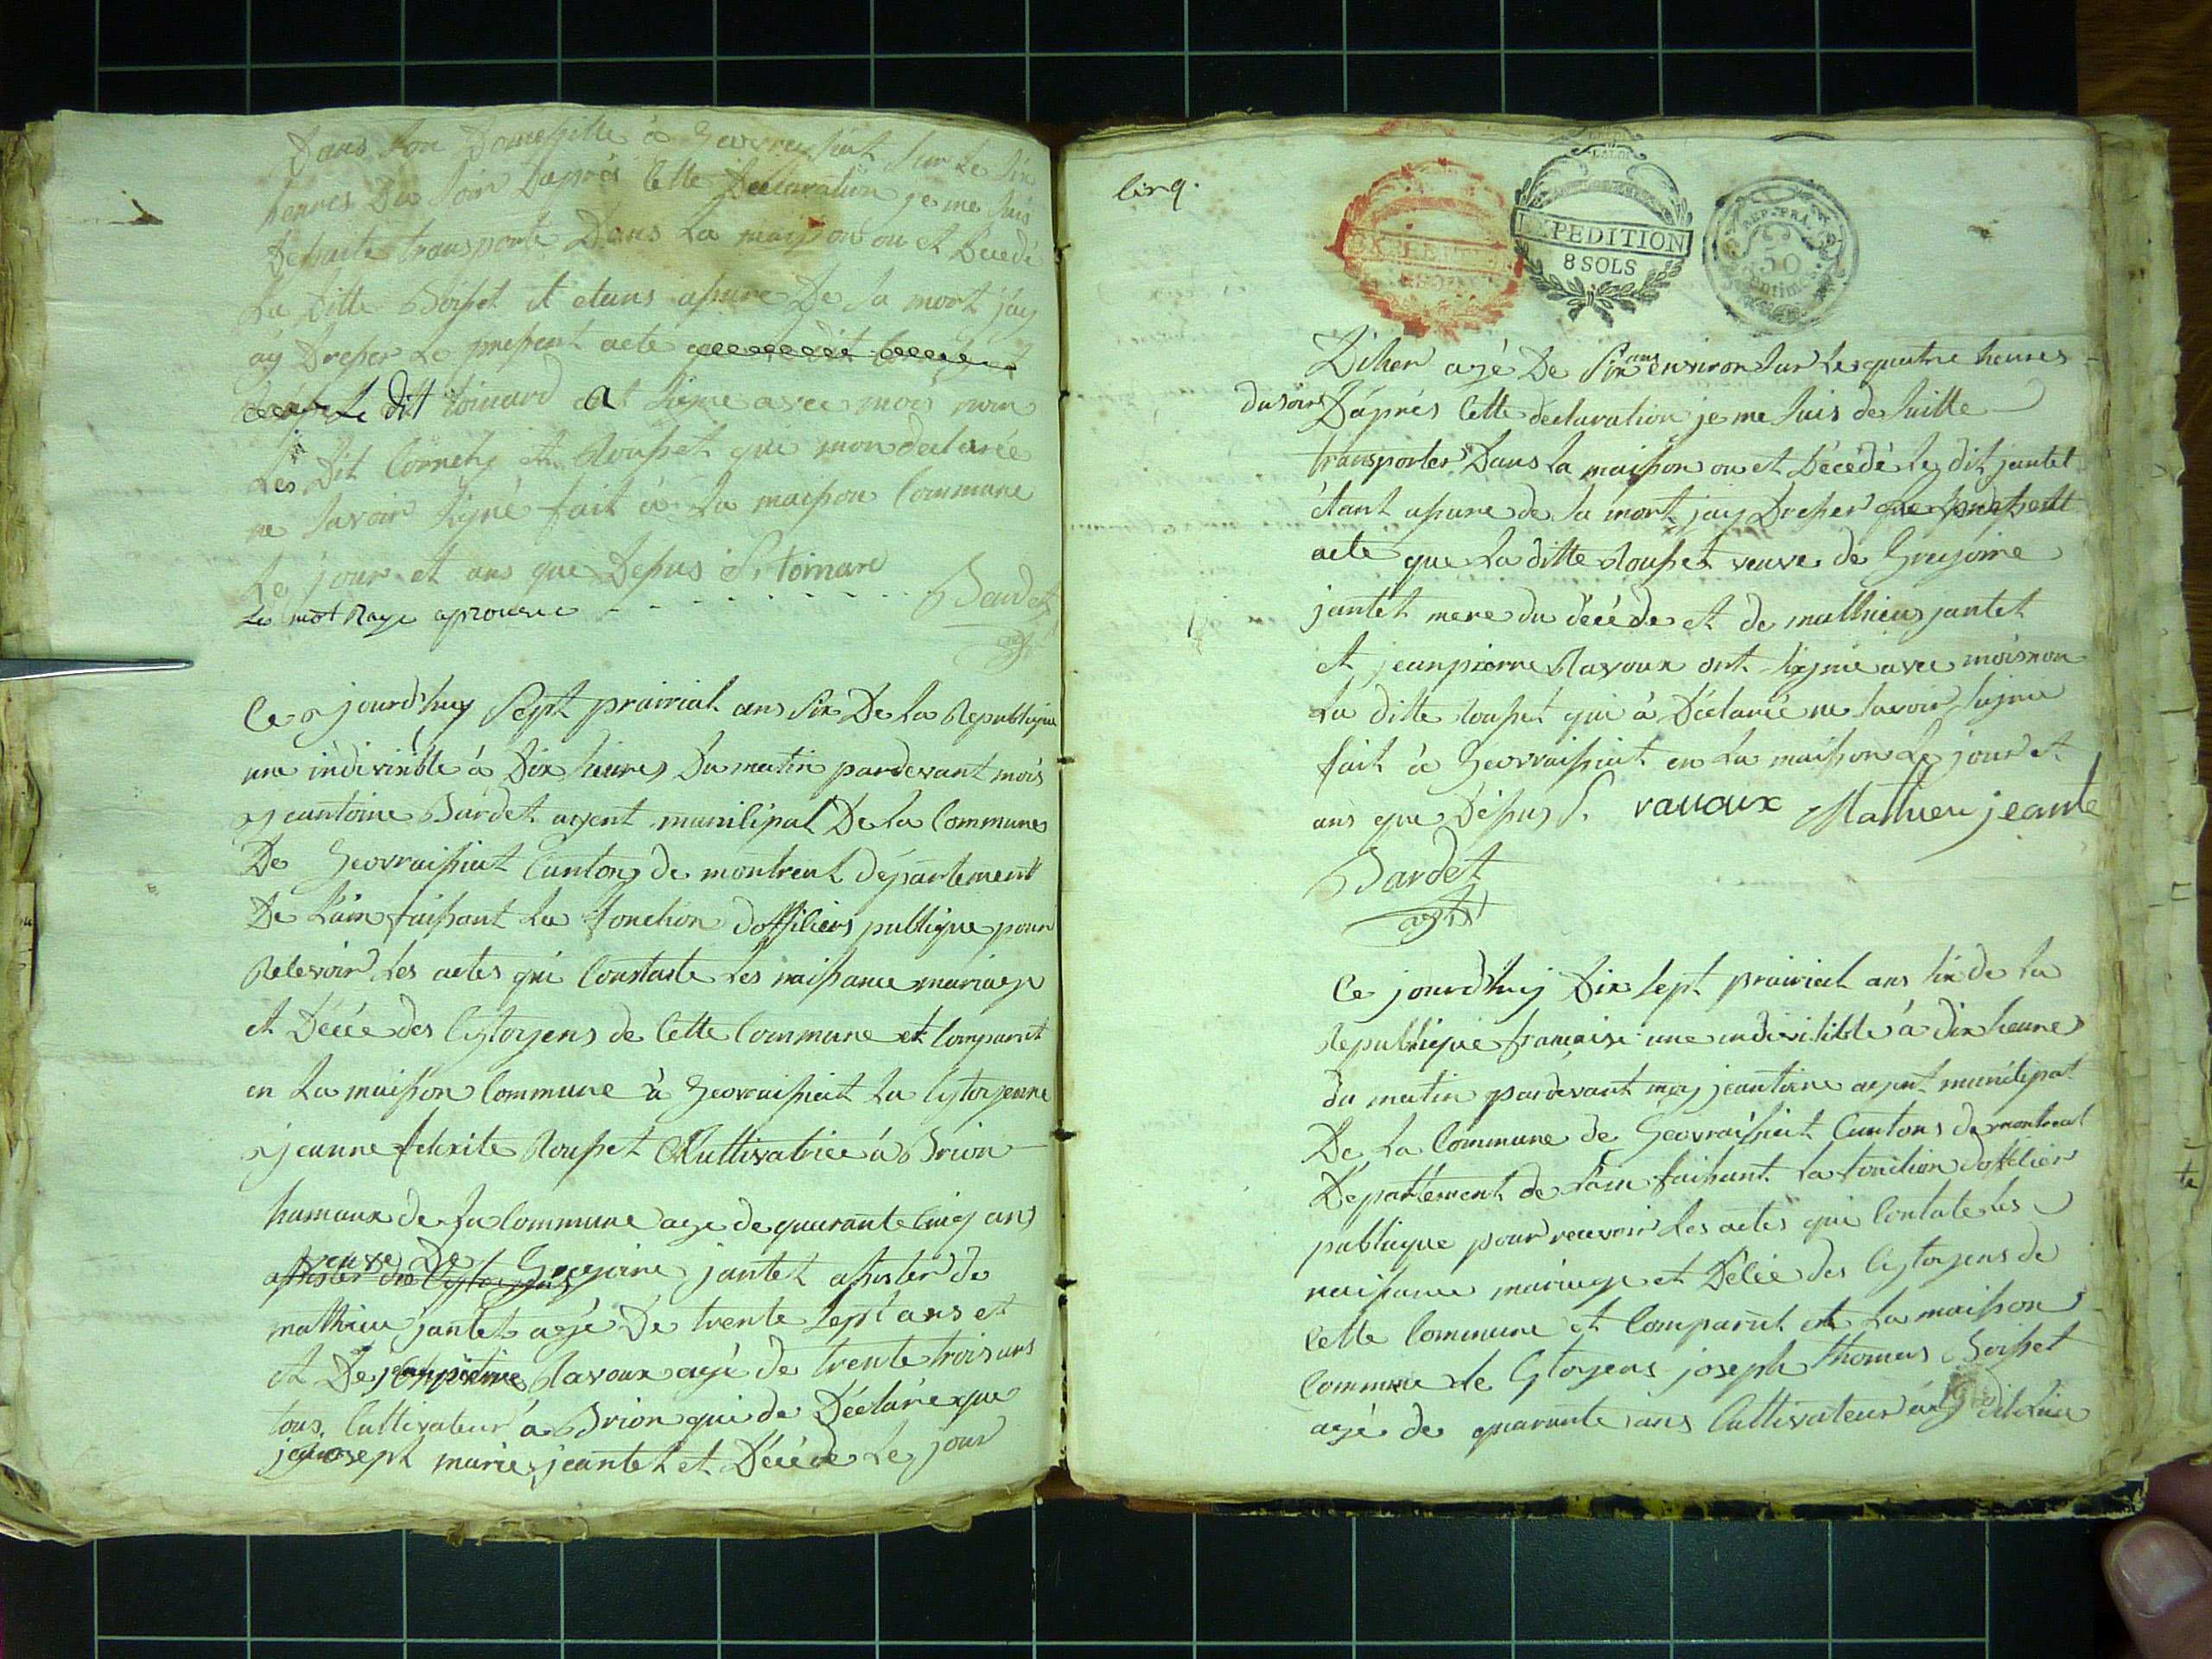 Dans son Domessille à Geovreissiat sur le six
heures Du soir Daprés Cette Declaration je me suis
De suite transporté Dans La maison ou et Decedé
La Ditte Boisset et etans assure De sa mort jay
ay Dresser Le pressent acte
Le Dit toinard at signe avec mois non
Les Dit Cornely et Rousset qui mon declarée
ne savoir signé fait à La maison Commune
Le jour et ans que Dessus S. toinare
Le mot Raye aprouvee Bardet
agt
Ce jourd'huy Sept prairial ans six De La Republique
une indivisible à Dix heures Du matin pardevant mois
jeantoine Bardet agent municipal De La Commune
De Geovraissiat Canton de montreal département
De Lain faissant La fonction dofficiers publique pour
Recevoir Les actes qui Constaste Les naissance mariage
et Décée des Cytoyens de Cette Commune et Comparut
en La maisson Commune à Geovraissiat La Cytoyenne
jeanne felixite Rousset Cultivatrice à Brion
hamaux de sa Commune age de quarante Cinq ans
veuve De
assister des Cytoyens Gregoire jantet assister de
mathieu jantet agé De trente sept ans et
et De jeanpierre Ravoux agé de trente trois ans
tous Cultivateur à Brion qui de Déclaré que
joseph marie jeantet et Décéde Le jour
Cinq.
EXPEDITION
8 SOLS
REP. FRA.
50
Centimes
D'hier agé De six ans environ sur les quatre heures
du soir D'aprés Cette declaration je me suis de suitte
transporter Dans La maisson ou et Décédé Le dit jantet
étant assure de sa mort jay Dresser que pressent
acte que La ditte Rousset veuve de Gregoire
jantet mere du décéde et de mathieu jantet
et jeanpierre Ravoux ont signie avec mois non
La ditte Rousset qui à Déclaré ne savoir signe
fait à Geovraissiat en La maisson Le jour et
ans que Dessus S. ravoux Mathieu jeante
Bardet
agt
Ce jourd'huy Dix sept prairial ans six de La
Republique française une indivisible à dix heures
du matin pardevant moy jeantoine agent municipal
De La Commune de Geovraissiat Cantons de montreal
Departement de Lain faissant La fonction d'officier
publique pour recevoir Les actes qui Contate Les
naissance mariage et Décée des Cytoyens de
Cette Commune et Comparut en La maisson
Commune Le Cytoyens joseph thomas Boisset
agé de quarante ans Cultivateur à dit Lieu